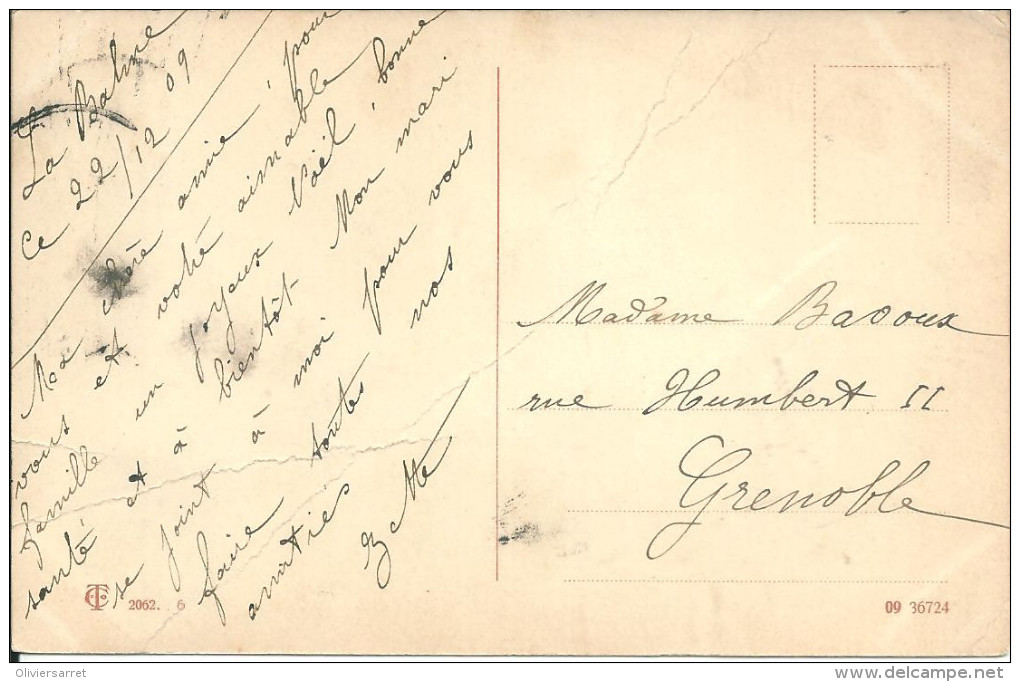 La Balme
ce 22/12 09
Ma chère amie, pour
vous et votre aimable
famille un joyeux Noël, bonne
santé et à bientôt. Mon mari
se joint à moi pour vous
faire toutes nos
amitiés
Madame Badoux
rue Humbert II
Grenoble
2062. 6
09 36724
Oliviersarret
www.delcampe.net